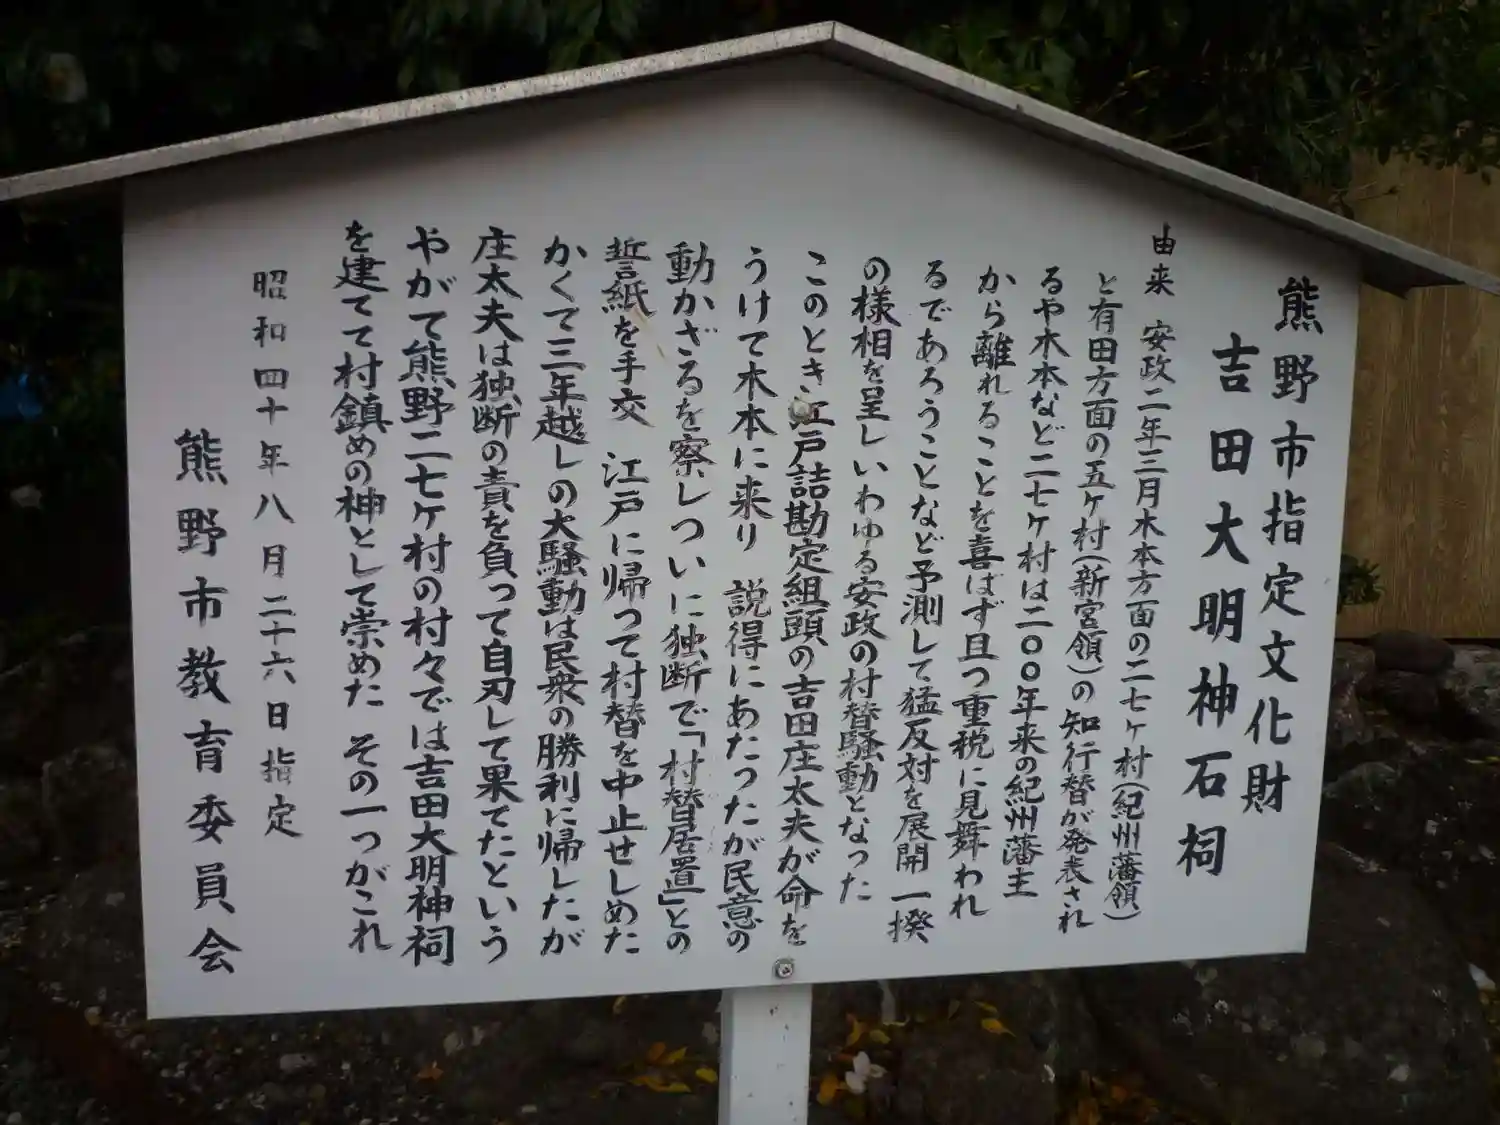 熊野市指定文化財
吉田大明神石祠
由来 安政二年三月木本方面の二七ヶ村(紀州藩領)
と有田方面の五ヶ村(新宮領)の知行替が発表され
るや木本など二七ヶ村は二〇〇年来の紀州藩主
から離れることを喜ばず且つ重税に見舞われ
るであろうことなど予測して猛反対を展開 一揆
の様相を呈しいわゆる安政の村替騒動となった
このとき江戸詰勘定組頭の吉田庄太夫が命を
うけて木本に来り 説得にあたったが民意の
動かざるを察しついに独断で「村替居置」との
誓紙を手交 江戸に帰って村替を中止せしめた
かくて三年越しの大騒動は民衆の勝利に帰したが
庄太夫は独断の責を負って自刃して果てたという
やがて熊野二七ヶ村の村々では吉田大明神祠
を建てて村鎮めの神として崇めた その一つがこれ
昭和四十年八月二十六日指定
熊野市教育委員会